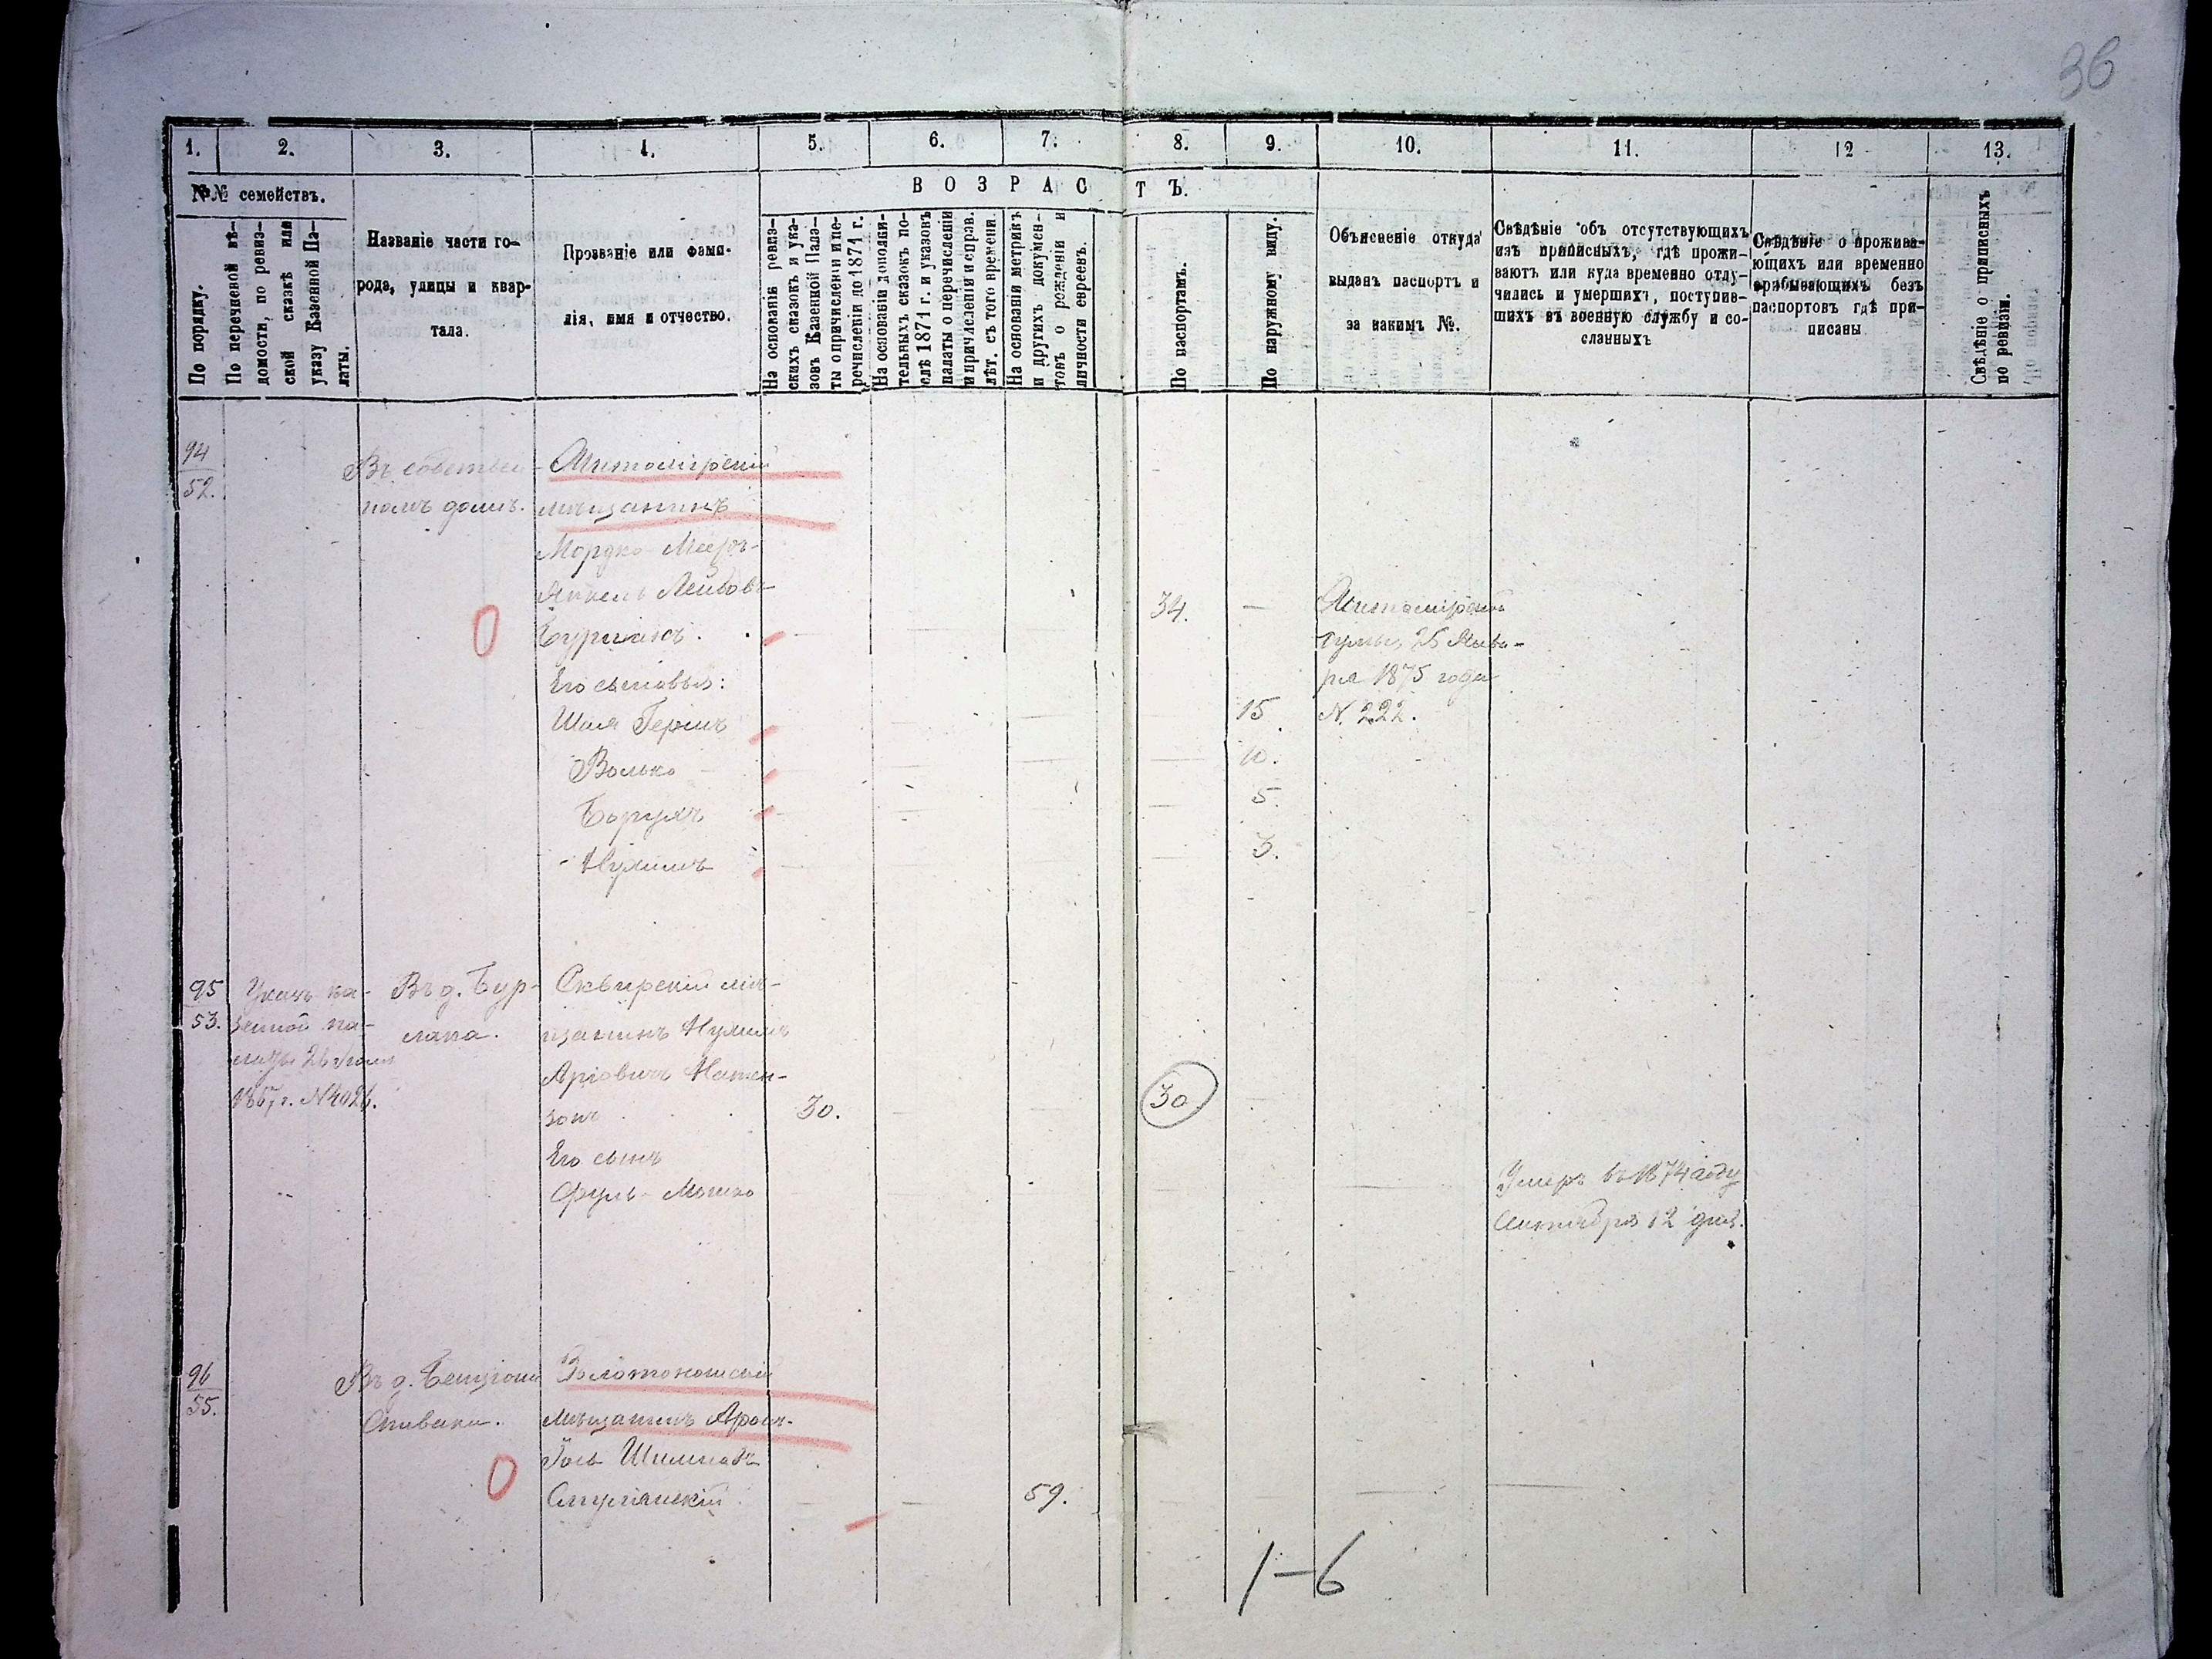 36
1. 2. 3. 4. 5. 6. 7. 8. 9. 10. 11. 12 13.
№№ семействъ.
ВОЗРАСТЪ.
По порядку.
По перечневой вѣ-
домости, по ревиз-
ской сказкѣ или
указу Казенной Па-
латы.
Названіе части го-
рода, улицы и квар-
тала.
Прозваніе или фами-
лія, имя и отчество.
На основаніи ревиз-
скихъ сказокъ и ука-
зовъ Казенной Пала-
ты о причисленіи и пе-
речисленіи до 1871 г.
На основаніи дополни-
тельныхъ сказокъ по-
слѣ 1871 г. и указовъ
палаты о перечисленіи
и причисленіи и справ.
лѣт. съ того времени.
На основаніи метрикъ
и другихъ докумен-
товъ о рожденіи и
личности евреевъ.
По паспортамъ.
По наружному виду.
Объясненіе откуда
выданъ паспортъ и
за какимъ №.
Свѣдѣніе объ отсутствующихъ
изъ приписныхъ, гдѣ прожи-
ваютъ или куда временно отлу-
чились и умершихъ, поступив-
шихъ въ военную службу и со-
сланныхъ
Свѣдѣніе о прожива-
ющихъ или временно
пребывающихъ безъ
паспортовъ гдѣ при-
писаны
Свѣдѣніе о приписныхъ
по ревизи.
94
52.
Въ собствен-
номъ домѣ.
Житомірскій
мѣщанинъ
Мордко Мееръ-
Янкель Лейбовъ
Бурлакъ.
34. —
Житомірской
Думы, 25 Янва-
ря 1875 года
N. 222.
Его сыновья:
Шая Гершъ
15
Волько
10.
Борухъ
5.
Нухимъ
3.
95
53.
Указъ ка-
зенной па-
латы 26
186 г. N 4026.
Въ д. Бур-
лака.
Сквирскій мѣ-
щанинъ Нухимъ
Аріовичъ Натен-
зонъ
30.
30
Его сынъ
Сруль-Мошко
Умеръ въ 1874 году
Сентября 12 дня.
96
55.
Въ д. Бенціона
Спивака.
Золотоношскій
мѣщанинъ Аронъ-
Іось Шимновъ
59.
1-6